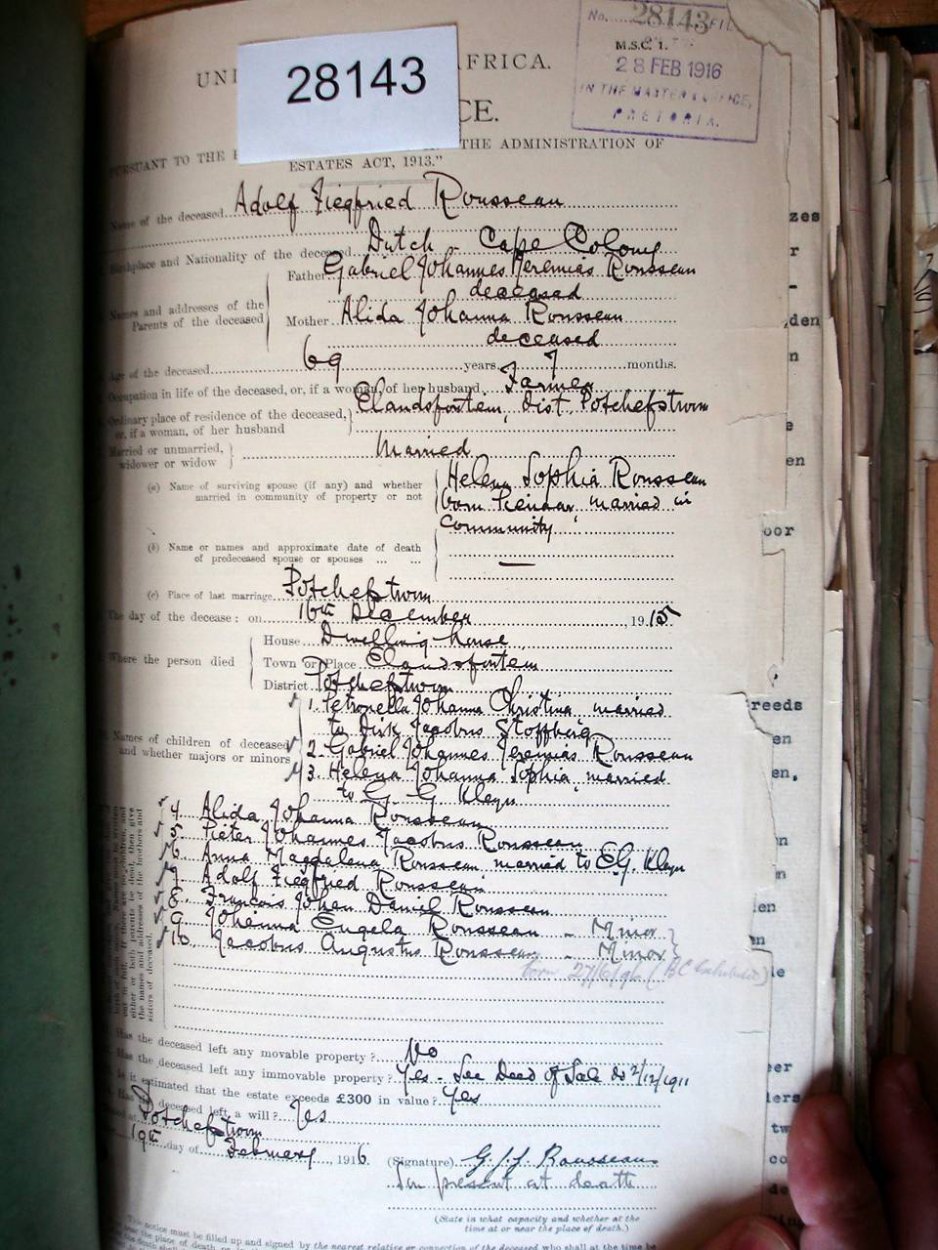 No. 28143
M.S.C. 1.
28 FEB 1916
IN THE MASTER'S OFFICE,
PRETORIA.
28143
UNI AFRICA.
CE.
PURSUANT TO THE THE ADMINISTRATION OF
ESTATES ACT, 1913."
Name of the deceased Adolf Ziegfried Rousseau
Birthplace and Nationality of the deceased Dutch - Cape Colony
Names and addresses of the Parents of the deceased
Father Gabriel Johannes Jeremias Rousseau
deceased
Mother Alida Johanna Rousseau
deceased
Age of the deceased 69 years 7 months.
Occupation in life of the deceased, or, if a woman, of her husband Farmer
Ordinary place of residence of the deceased, or, if a woman, of her husband Elandsfontein, Dist. Potchefstrom
Married or unmarried, widower or widow Married
(a) Name of surviving spouse (if any) and whether married in community of property or not
Helena Sophia Rousseau
born married in
Community
(b) Name or names and approximate date of death of predeceased spouse or spouses ... ... —
(c) Place of last marriage Potchefstrom
The day of the decease: on 16th December, 1915
Where the person died
House Dwelling house
Town or Place Elandsfontein
District Potchefstrom
Names of children of deceased and whether majors or minors
1. Petronella Johanna Christina married
to Dirk Jacobus Stoffberg
2. Gabriel Johannes Jeremias Rousseau
3. Helena Johanna Sophia married
to G. G. Kleyn
4. Alida Johanna Rousseau
5. Pieter Johannes Jacobus Rousseau
6. Anna Magdalena Rousseau married to E.G. Kleyn
7. Adolf Ziegfried Rousseau
8. Francois Johan Daniel Rousseau
9. Johanna Engela Rousseau - Minor
10. Jacobus Augustus Rousseau - Minor
Has the deceased left any movable property? No
Has the deceased left any immovable property? Yes - See Deed of Sale dd 2/12/1911
Is it estimated that the estate exceeds £300 in value? Yes
Has the deceased left a will? Yes
Dated at Potchefstrom
19th day of February, 1916.
(Signature) G.J.J. Rousseau
present at death
(State in what capacity and whether at the
time at or near the place of death.)
This notice must be filled up and signed by the nearest relative or connection of the deceased who shall at the time be